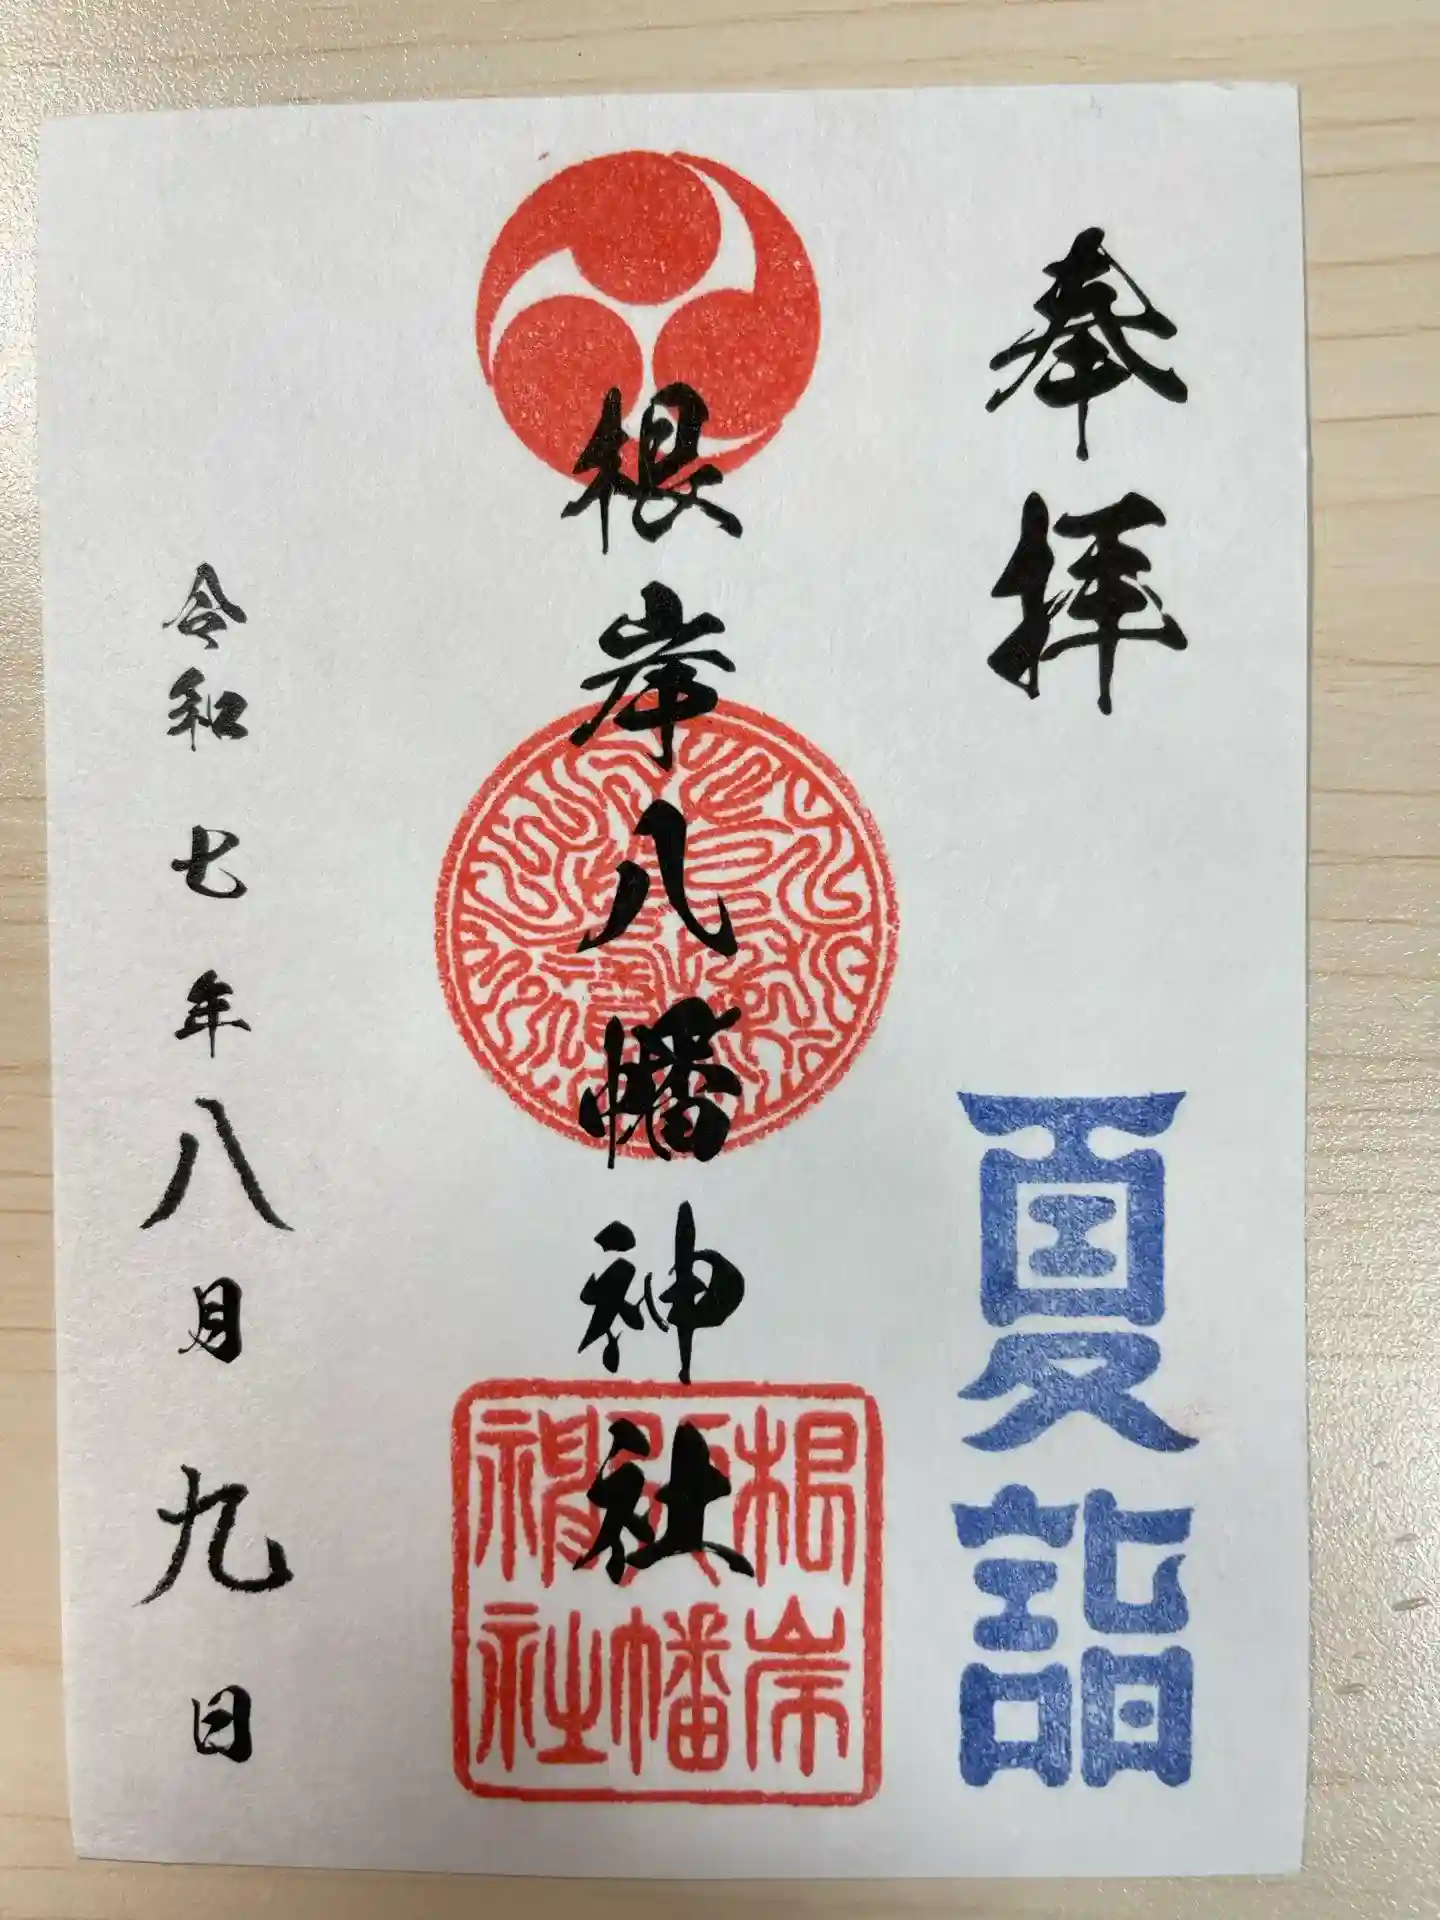 奉拝
夏詣
根岸八幡神社
根岸
八幡
神社
令和七年八月九日